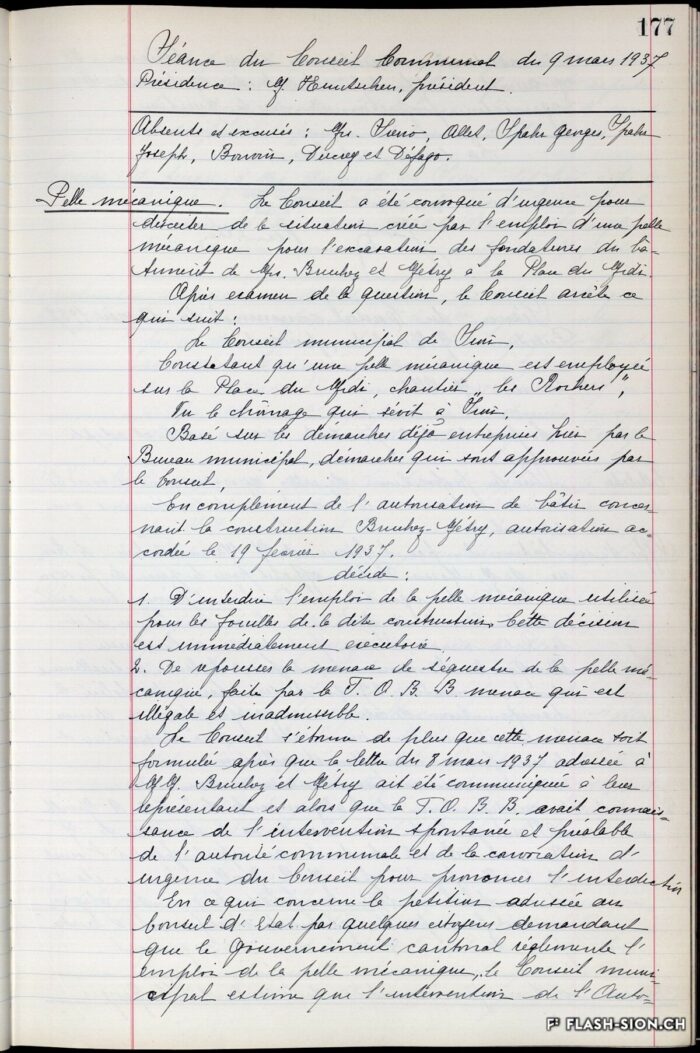 177
Séance du Conseil Communal du 9 mars 1937
Présidence : M. Kuntschen, président.
Absents et excusés : Mrs. Imo, Allet, Spahr Georges, Spahr
Joseph, Bonvin, Ducrey et Défago.
Pelle mécanique. Le Conseil a été convoqué d'urgence pour
discuter de la situation créée par l'emploi d'une pelle
mécanique pour l'excavation des fondations du bâ-
timent de Mrs. Bruchez et Métry à la Place du Midi.
Après examen de la question, le Conseil arrête ce
qui suit :
Le Conseil municipal de Sion,
Constatant qu'une pelle mécanique est employée
sur la Place du Midi, chantier „ les Rochers ",
Vu le chômage qui sévit à Sion,
Basé sur les démarches déjà entreprises hier par le
Bureau municipal, démarches qui sont approuvées par
le Conseil,
En complément de l'autorisation de bâtir concer
nant la construction Bruchez-Métry, autorisation ac-
cordée le 19 février 1937.
décide :
1. D'interdire l'emploi de la pelle mécanique utilisée
pour les fouilles de la dite construction. Cette décision
est immédiatement exécutoire.
2. De repousser la menace de séquestre de la pelle mé-
canique, faite par la F. O. B. B. menace qui est
illégale et inadmissible.
Le Conseil s'étonne de plus que cette menace soit
formulée après que la lettre du 8 mars 1937 adressée à
M.M. Bruchez et Métry ait été communiquée à leur
représentant et alors que la F. O. B. B. avait connais-
sance de l'intervention spontanée et préalable
de l'autorité communale et de la convocation d'
urgence du Conseil pour prononcer l'interdiction
En ce qui concerne la pétition adressée au
Conseil d'Etat par quelques citoyens demandant
que le Gouvernement cantonal réglemente l'
emploi de la pelle mécanique, le Conseil muni-
cipal estime que l'intervention de l'Auto-
FLASH-SION.CH